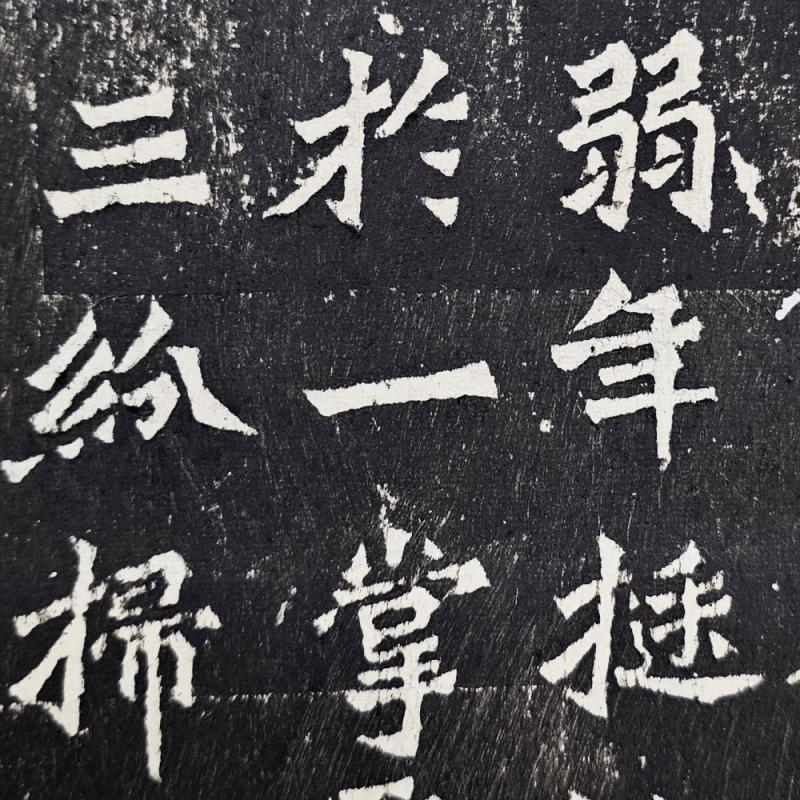 弱年挺
於一掌
三紛掃